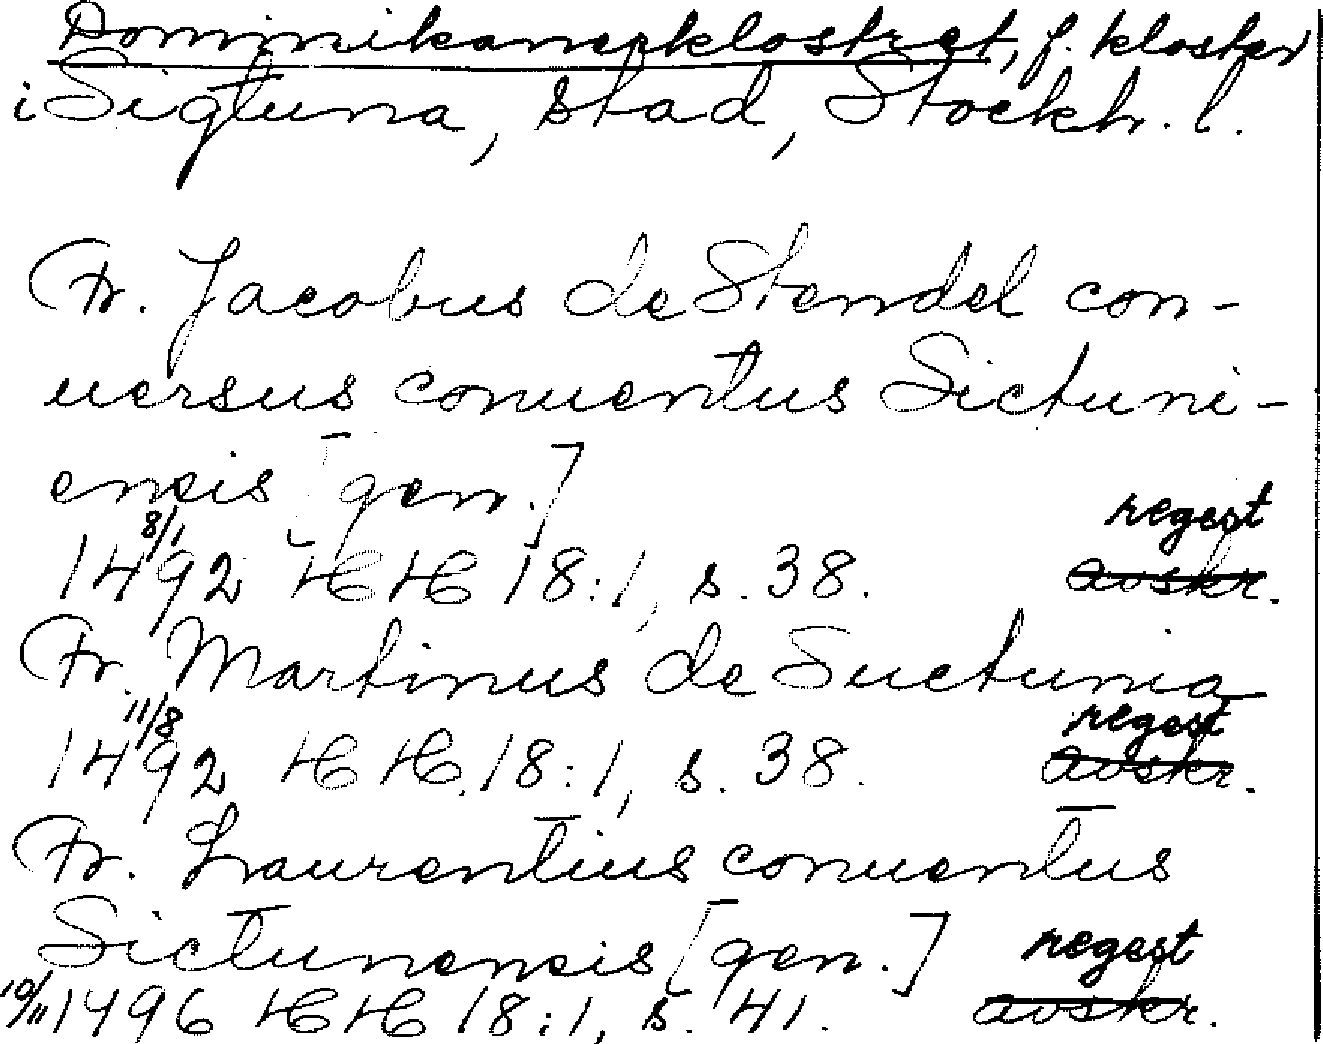 Dominikanerklostret, f. kloster
i Sigtuna, stad, Stockh. l.
Fr. Jacobus de Stendel con-
uersus conuentus Sictuni-
ensis [gen.]
regest
8/1
1492 HH 18:1, s. 38. avskr.
Fr. Martinus de Suctunia
11/8 regest
1492 HH 18:1, s. 38. avskr.
Fr. Laurentius conuentus
Sictunensis [gen.] regest
10/11 1496 HH 18:1, s. 41. avskr.